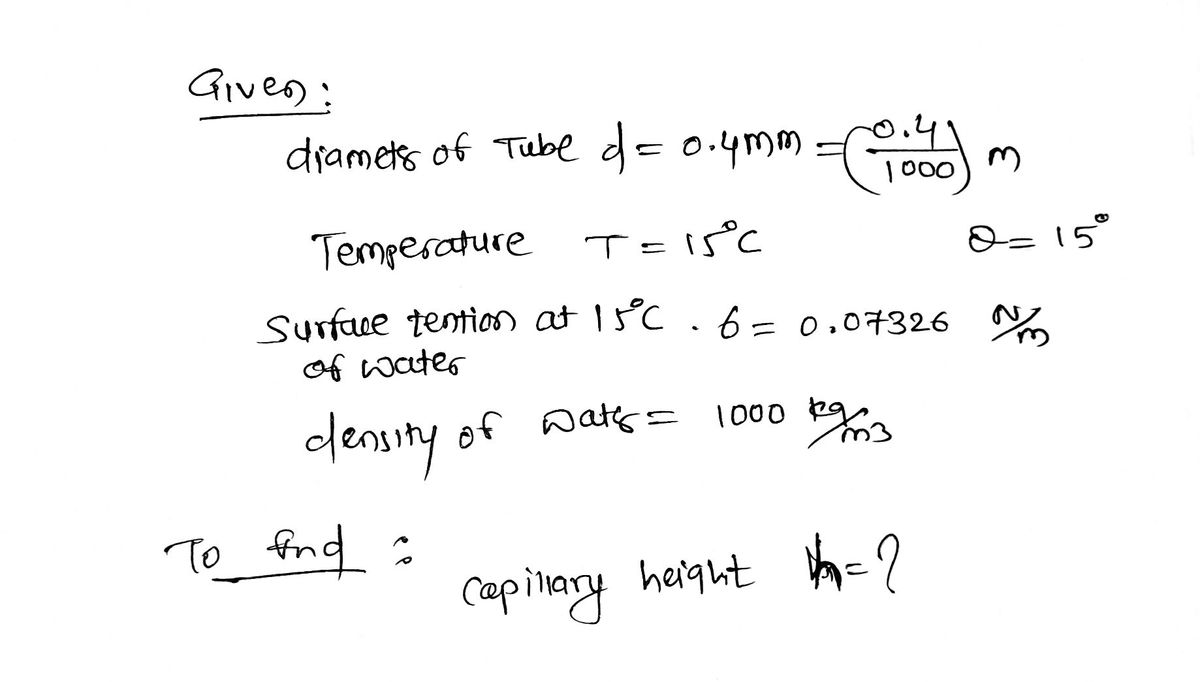 Given:
diameter of Tube d = 0.4mm = (0.4/1000) m
Temperature T = 15°C θ = 15°
Surface tention at 15°C . σ = 0.07326 N/m
of water
density of water = 1000 kg/m3
To find :
capillary height h = ?